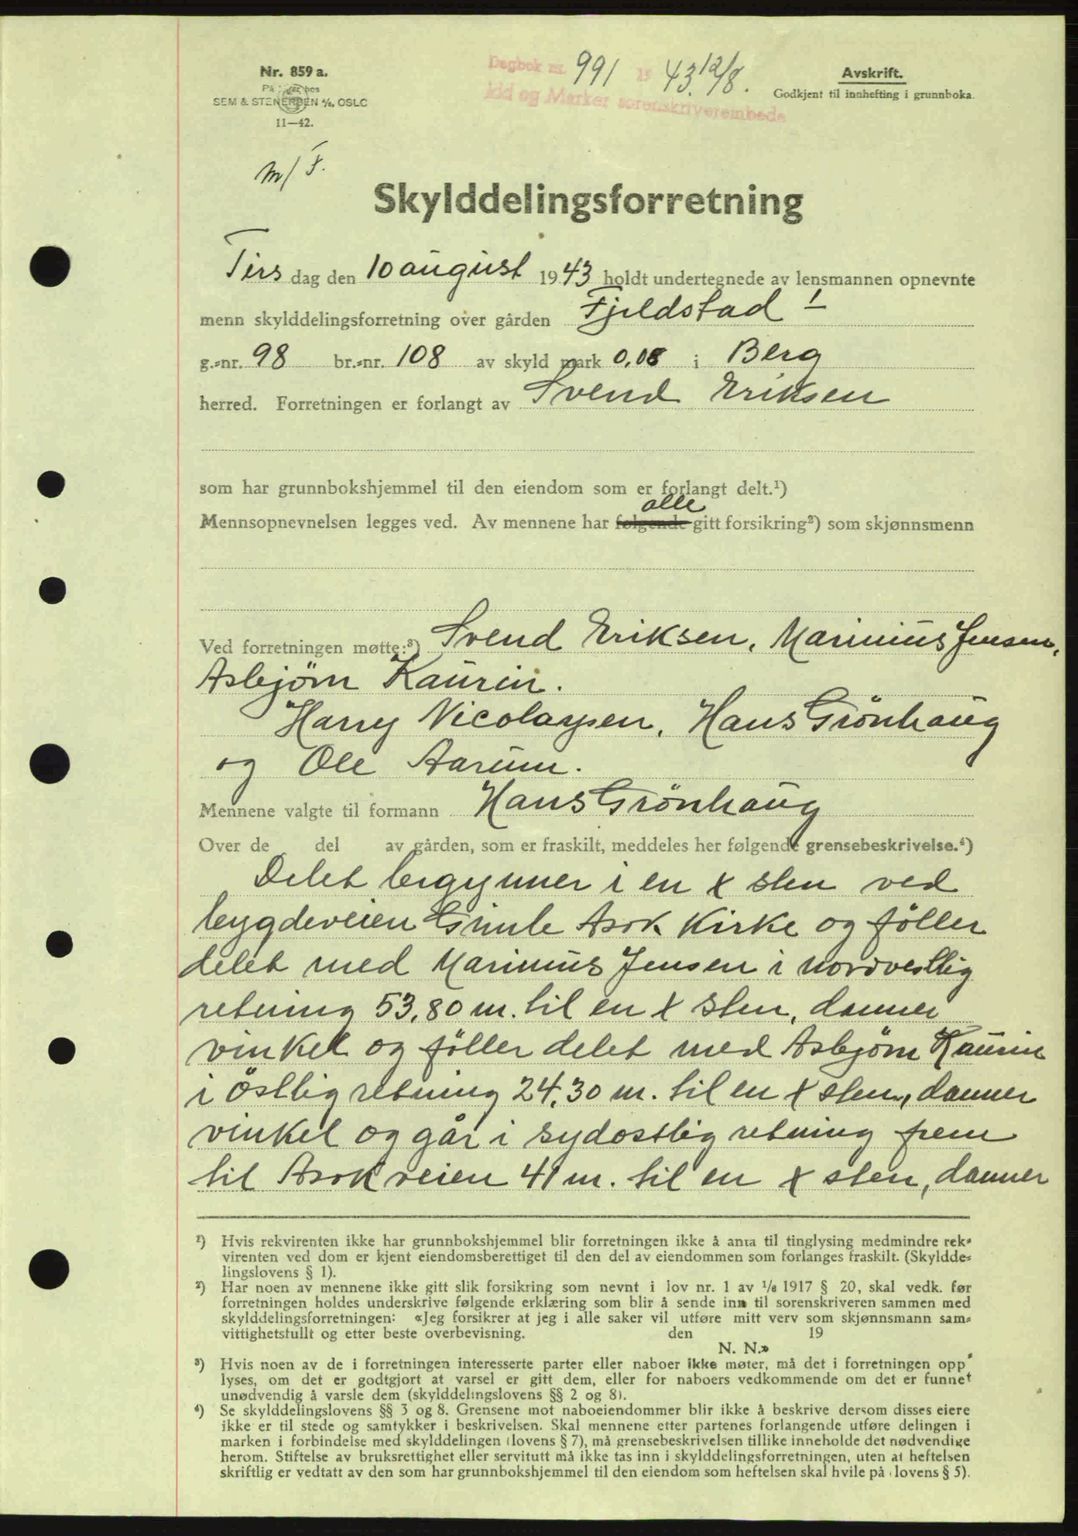 Nr. 859 a.
SEM & STENERSEN A/S, OSLO
11—42.
Dagbok nr. 991 19 43. 12/8.
Idd og Marker sorenskriverembede
Avskrift.
Godkjent til innhefting i grunnboka.
m/
Skylddelingsforretning
Tirs dag den 10 august 1943 holdt undertegnede av lensmannen opnevnte
menn skylddelingsforretning over gården Fjeldstad I
g.-nr. 98 br.-nr. 108 av skyld mark 0,08 i Berg
herred. Forretningen er forlangt av Svend Eriksen
som har grunnbokshjemmel til den eiendom som er forlangt delt.¹)
alle
Mennsopnevnelsen legges ved. Av mennene har følgende gitt forsikring²) som skjønnsmenn
Ved forretningen møtte:³) Svend Eriksen, Marinius Jensen,
Asbjørn Kaurin.
Harry Nicolaysen, Hans Grönhaug
og Ole Aarum.
Mennene valgte til formann Hans Grönhaug
Over de del av gården, som er fraskilt, meddeles her følgende grensebeskrivelse.⁴)
Delet begynner i en x sten ved
bygdeveien Gimle Asak Kirke og föller
delet med Marinius Jensen i nordvestlig
retning 53,80 m. til en x sten, danner
vinkel og föller delet med Asbjørn Kaurin
i östlig retning 24,30 m. til en x sten, danner
vinkel og går i sydostlig retning frem
til Asakveien 41 m. til en x sten, danner
¹) Hvis rekvirenten ikke har grunnbokshjemmel blir forretningen ikke å anta til tinglysing medmindre rek-
virenten ved dom er kjent eiendomsberettiget til den del av eiendommen som forlanges fraskilt. (Skyldde-
lingslovens § 1).
²) Har noen av mennene ikke gitt slik forsikring som nevnt i lov nr. 1 av 1/6 1917 § 20, skal vedk. før
forretningen holdes underskrive følgende erklæring som blir å sende inn til sorenskriveren sammen med
skylddelingsforretningen: «Jeg forsikrer at jeg i alle saker vil utføre mitt verv som skjønnsmann sam-
vittighetsfullt og etter beste overbevisning. den 19
N. N.»
³) Hvis noen av de i forretningen interesserte parter eller naboer ikke møter, må det i forretningen opp-
lyses, om det er godtgjort at varsel er gitt dem, eller for naboers vedkommende om det er funnet
unødvendig å varsle dem (skylddelingslovens §§ 2 og 8).
⁴) Se skylddelingslovens §§ 3 og 8. Grensene mot naboeiendommer blir ikke å beskrive dersom disses eiere
ikke er til stede og samtykker i beskrivelsen. Skal mennene etter partenes forlangende utføre delingen i
marken i forbindelse med skylddelingen (lovens § 7), må grensebeskrivelsen tillike inneholde det nødvendige
herom. Stiftelse av bruksrettighet eller servitutt må ikke tas inn i skylddelingsforretningen, uten at heftelsen
skriftlig er vedtatt av den som har grunnbokshjemmel til den eiendom som heftelsen skal hvile på (lovens § 5).